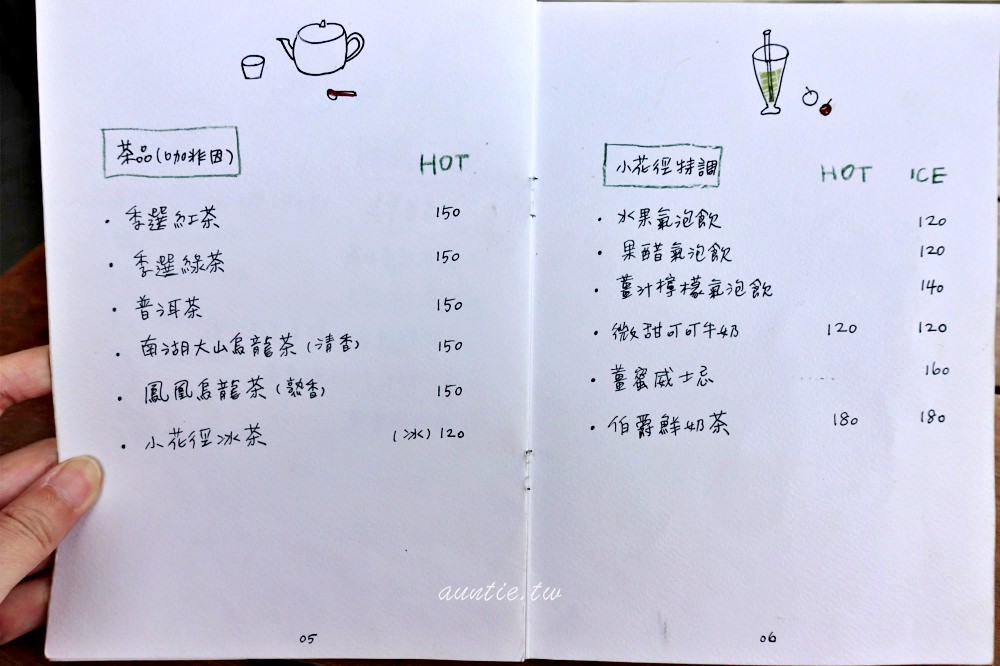 茶品(咖非因) HOT
・季選紅茶 150
・季選綠茶 150
・普洱茶 150
・南湖大山烏龍茶(清香) 150
・鳳凰烏龍茶(熟香) 150
・小花徑冰茶 (冰) 120
05
小花徑特調 HOT ICE
・水果氣泡飲 120
・果醋氣泡飲 120
・薑汁檸檬氣泡飲 140
・微甜可可牛奶 120 120
・薑蜜威士忌 ..... 160
・伯爵鮮奶茶 180 180
06
auntie.tw